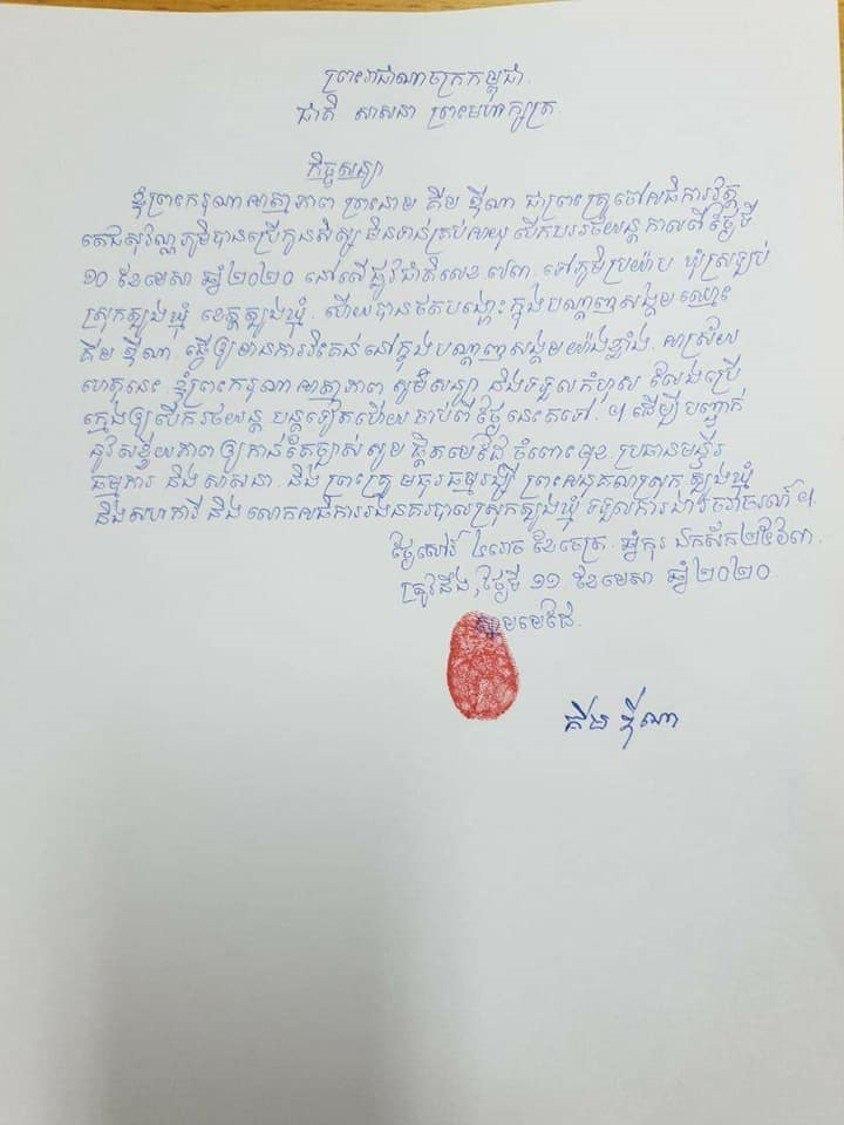 ព្រះរាជាណាចក្រកម្ពុជា.
ជាតិ សាសនា ព្រះមហាក្សត្រ.
កិច្ចសន្យា
ខ្ញុំព្រះករុណាអាត្មាភាព ព្រះនាម គីម ឌីណា ជាព្រះគ្រូចៅអធិការវត្ត
តេជសុវណ្ណភូមិបានប្រើកូនសិស្ស មិនទាន់គ្រប់អាយុ បើកបររថយន្ត កាលពីថ្ងៃទី
១០ ខែមេសា ឆ្នាំ២០២០ នៅលើផ្លូវជាតិលេខ ៧៣. នៅភូមិ ឃុំស្រឡប់
ស្រុកត្បូងឃ្មុំ ខេត្តត្បូងឃ្មុំ. ហើយបានថតបង្ហោះក្នុងបណ្តាញសង្គម ឈ្មោះ
គីម ឌីណា ធ្វើឲ្យមានការរិះគន់នៅក្នុងបណ្តាញសង្គមយ៉ាងខ្លាំង. អាស្រ័យ
ហេតុនេះ ខ្ញុំព្រះករុណាអាត្មាភាព សូមសន្យា និងទទួលកំហុស លែងប្រើ
ក្មេងឲ្យបើករថយន្ត បន្តទៀតហើយ ចាប់ពីថ្ងៃនេះតទៅ. ។ ដើម្បីបញ្ជាក់
នូវសច្ចភាពឲ្យកាន់តែច្បាស់ សូម ផ្តិតមេដៃ ចំពោះមុខ ប្រធានមន្ទីរ
ធម្មការ និង សាសនា និង ព្រះគ្រូ ព្រះអនុគណស្រុក ត្បូងឃ្មុំ
និងសហការី និង លោកអធិការរងនគរបាលស្រុកត្បូងឃ្មុំ ទទួលការងារចរាចរណ៍ ។
ថ្ងៃសៅរ៍ ៤រោច ខែចេត្រ ឆ្នាំកុរ ឯកស័ក២៥៦៣.
ត្រូវនឹង,ថ្ងៃទី ១១ ខែមេសា ឆ្នាំ២០២០
ស្នាមមេដៃ.
គីម ឌីណា